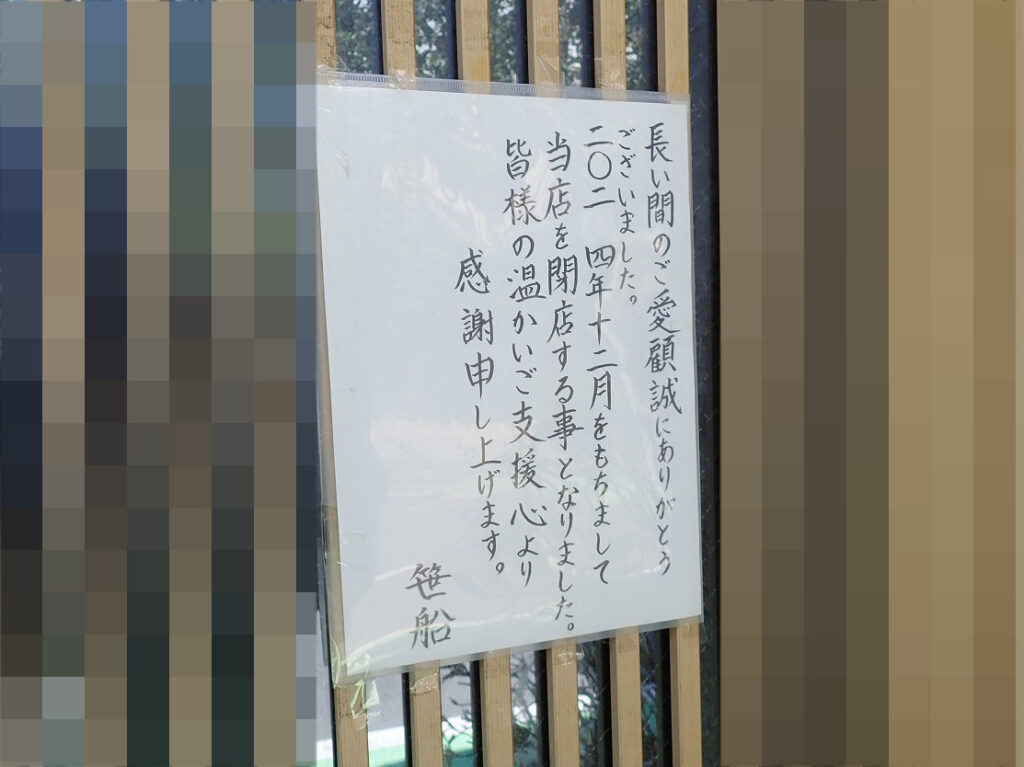 長い間のご愛顧誠にありがとう
ございました。
二〇二四年十二月をもちまして
当店を閉店する事となりました。
皆様の温かいご支援心より
感謝申し上げます。
笹船